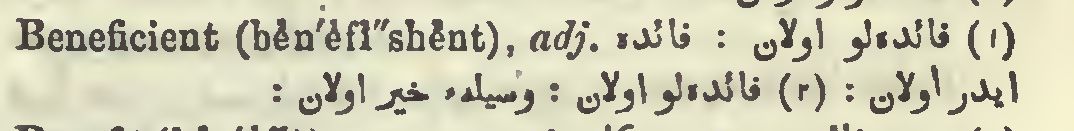 Beneficient (bĕn′ĕfĭ″shĕnt), adj. (۱) فائده‌لو اولان : فائده
ایدر اولان : (۲) فائده‌لو اولان : وسیلهء خیر اولان :